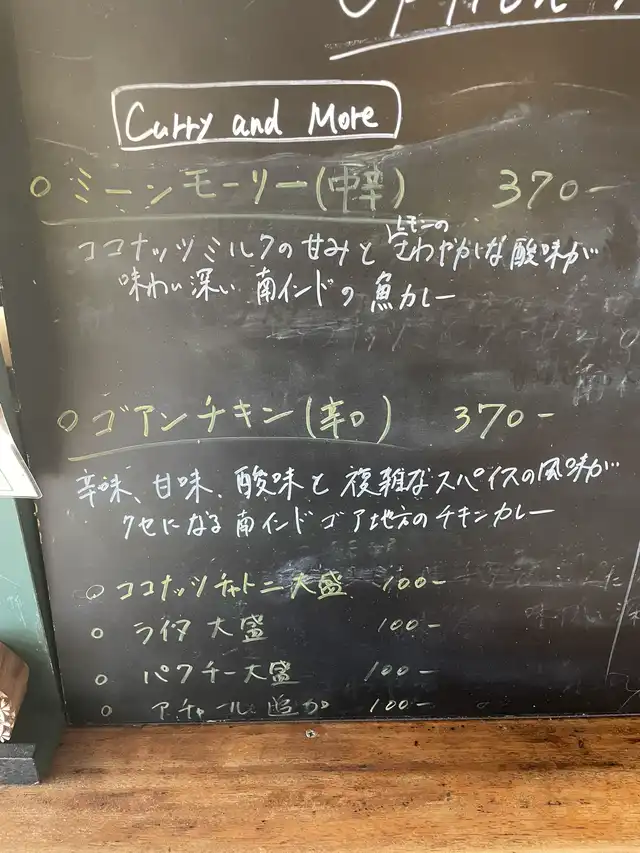 Option
Curry and More
○ ミーンモーリー(中辛) 370-
ココナッツミルクの甘みとレモンのさわやかな酸味が
味わい深い 南インドの魚カレー
○ ゴアンチキン(辛口) 370-
辛味、甘味、酸味と複雑なスパイスの風味が
クセになる南インドゴア地方のチキンカレー
○ ココナッツチャトニ大盛 100-
○ ライタ大盛 100-
○ パクチー大盛 100-
○ アチャール追加 100-